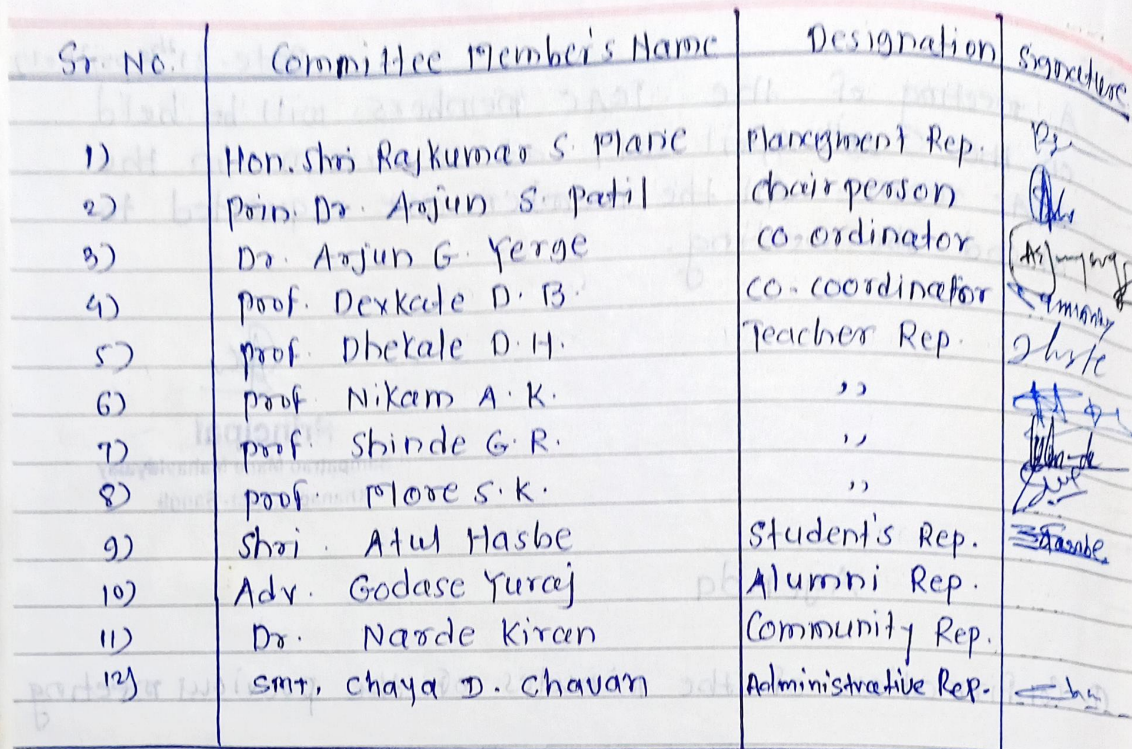 Sr. No. Committee Member's Name Designation Signature
1) Hon. Shri Rajkumar S. Mane Managment Rep.
2) Prin. Dr. Arjun S. Patil Chairperson
3) Dr. Arjun G. Yerge Co-ordinator
4) Prof. Devkate D. B. Co-coordinator
5) Prof. Dhekale D. H. Teacher Rep.
6) Prof. Nikam A. K. ,,
7) Prof. Shinde G. R. ,,
8) Prof. More S. K. ,,
9) Shri. Atul Hasbe Student's Rep. Hasbe
10) Adv. Godase Yuraj Alumni Rep.
11) Dr. Narde Kiran Community Rep.
12) Smt. Chaya D. Chavan Administrative Rep.